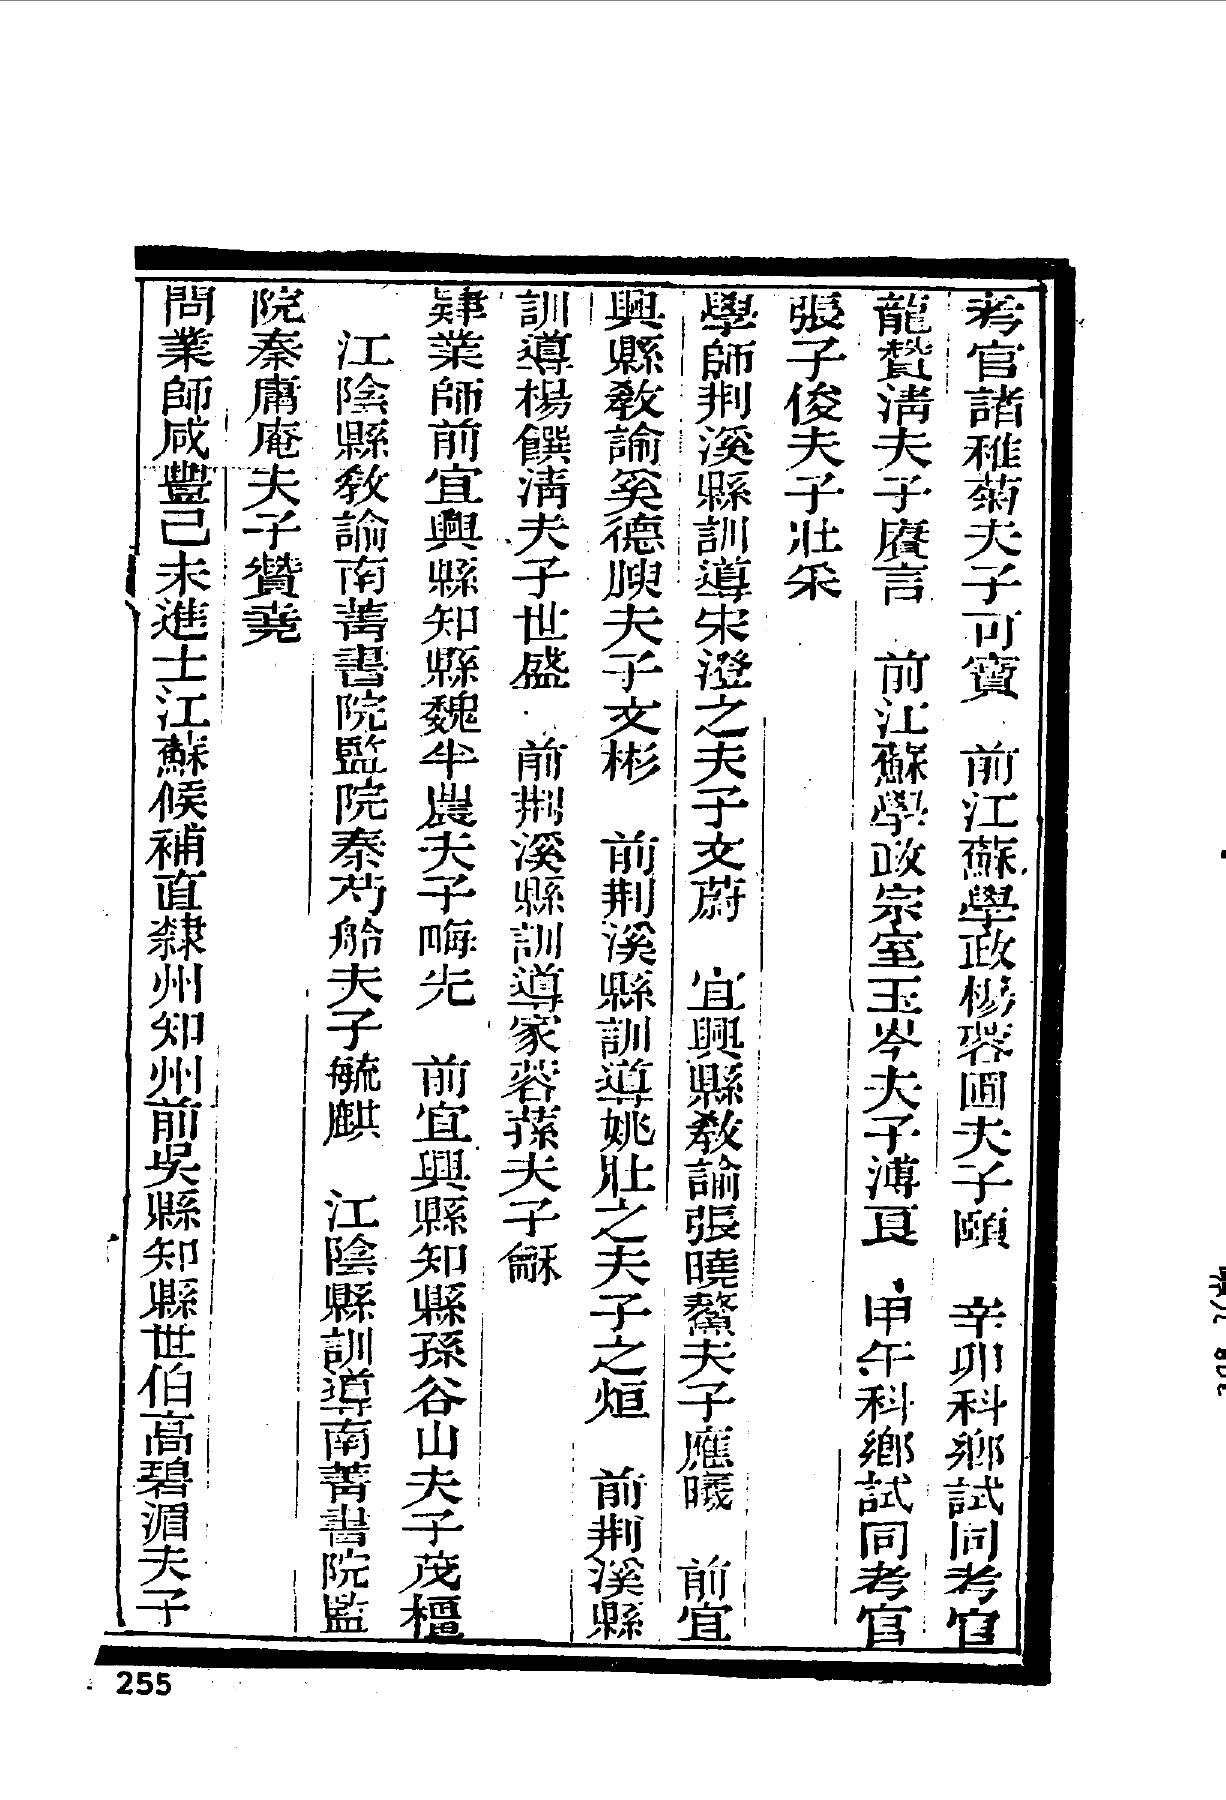 考官諸稚菊夫子可寶　前江蘇學政楊蓉圃夫子頤　辛卯科鄉試同考官
龍贊淸夫子賡言　前江蘇學政宗室玉岑夫子溥良　甲午科鄉試同考官
張子俊夫子壯采
學師荆溪縣訓導宋澄之夫子文蔚　宜興縣敎諭張曉鰲夫子應曦　前宜
興縣敎諭奚德腴夫子文彬　前荆溪縣訓導姚壯之夫子之烜　前荆溪縣
訓導楊饌淸夫子世盛　前荆溪縣訓導家蓉蓀夫子龢
肄業師前宜興縣知縣魏半農夫子晦先　前宜興縣知縣孫谷山夫子茂橿
江陰縣敎諭南菁書院監院秦芍舲夫子毓麒　江陰縣訓導南菁書院監
院秦庸庵夫子贊堯
問業師咸豐己未進士江蘇候補直隸州知州前吳縣知縣世伯高碧湄夫子
255